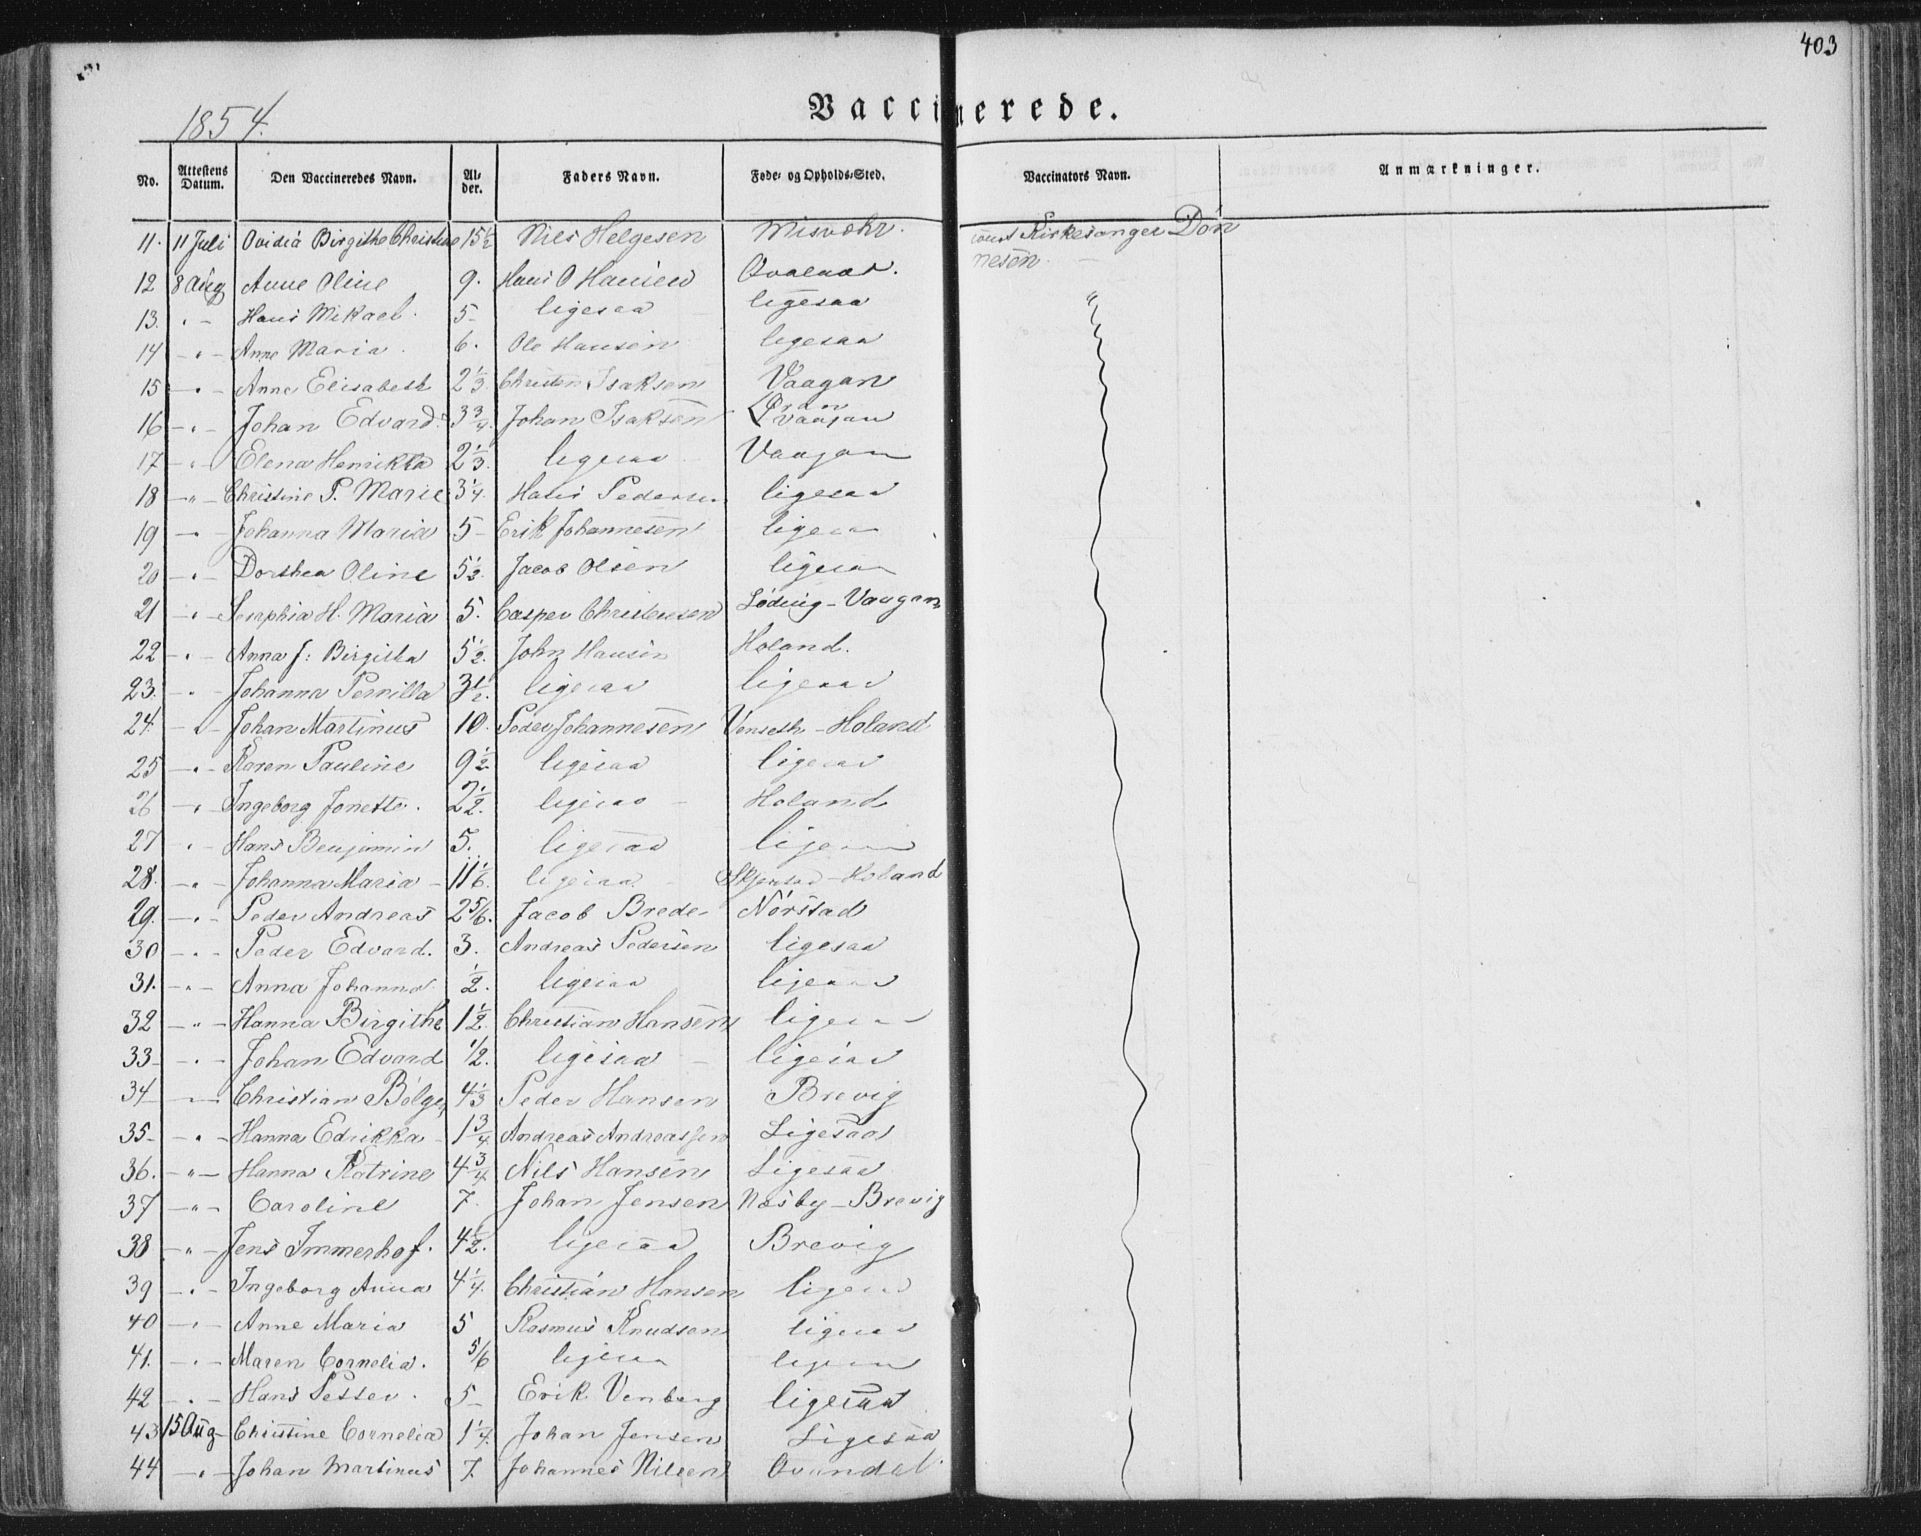 403
Vaccinerede.
1854.
No. Attestens Datum. Den Vaccineredes Navn. Alder. Faders Navn. Føde- og Opholds-Sted. Vaccinators Navn. Anmærkninger.
11. 11 Juli Ovidia Birgithe Christine 15 1/2 Nils Helgesen Misvær. Kirkesanger Døn
nesen
12 8 Aug Anne Oline 9. Hans O Hansen
13. " - Hans Mikael. 5 - ligesaa ligesaa
14 - " - Anne Maria. 6. Ole Hansen ligesaa
15 - " - Anne Elisabeth 2 1/3 Christen Isaksen Vaagan
16 - " - Johan Edvard. 3 3/4. Johan Isaksen Vaagan
17 - " - Elena Henrikka 2 1/3. ligesaa Vaagan
18 - " - Christine P. Marie 3 1/4. Hans Pedersen ligesaa
19 - " - Johanna Maria 5 - Erik Johannesen ligesaa
20 - " - Dorthea Oline 5 1/2. Jacob Olsen ligesaa
21 - " - Seraphia H. Maria 5. Casper Christensen Løding - Vaagan
22 - " - Anna J: Birgitta 5 1/2. John Hansen Holand.
23. - " - Johanna Pernilla 3 1/2. ligesaa ligesaa
24. - " - Johan Martinus 10. Peder Johannesen Venseth - Holand
25 - " - Karen Pauline 9 1/2 ligesaa ligesaa
26 - " - Ingeborg Jonette. 2 1/2. ligesaa - Holand
27 - " - Hans Benjamin 5. ligesaa ligesaa
28. - " - Johanna Maria - 11 1/6. ligesaa - Skjerstad - Holand
29. - " - Peder Andreas 2 5/6. Jacob Brede - Nørstad
30 - " - Peder Edvard. 3. Andreas Pedersen ligesaa
31. - " - Anna Johanna 1/2. ligesaa ligesaa
32 - " - Hanna Birgithe 1 1/2. Christian Hansen ligesaa
33 - " - Johan Edvard 1/2. ligesaa - ligesaa
34 - " - Christian Bølge 4 1/3 Peder Hansen Brevig
35 - " - Hanna Edrikka - 1 3/4 Andreas Andreassen Ligesaa
36. - " - Hanna Katrine 4 3/4 Nils Hansen Ligesaa
37 - " - Caroline 7. Johan Jensen Næsby - Brevig
38 - " - Jens Immerhof. 4 1/2. ligesaa Brevig
39 - " - Ingeborg Anna 4 1/4. Christian Hansen ligesaa
40 - " - Anne Maria 5 Rasmus Knudsen ligesaa
41. - " - Maren Cornelia. 5/6 ligesaa ligesaa
42 - " - Hans Petter. 5 - Erik Venberg ligesaa
43 15 Aug - Christine Cornelia 1 1/4. Johan Jensen Ligesaa
44 - " - Johan Martinus 7. Johannes Nilsen